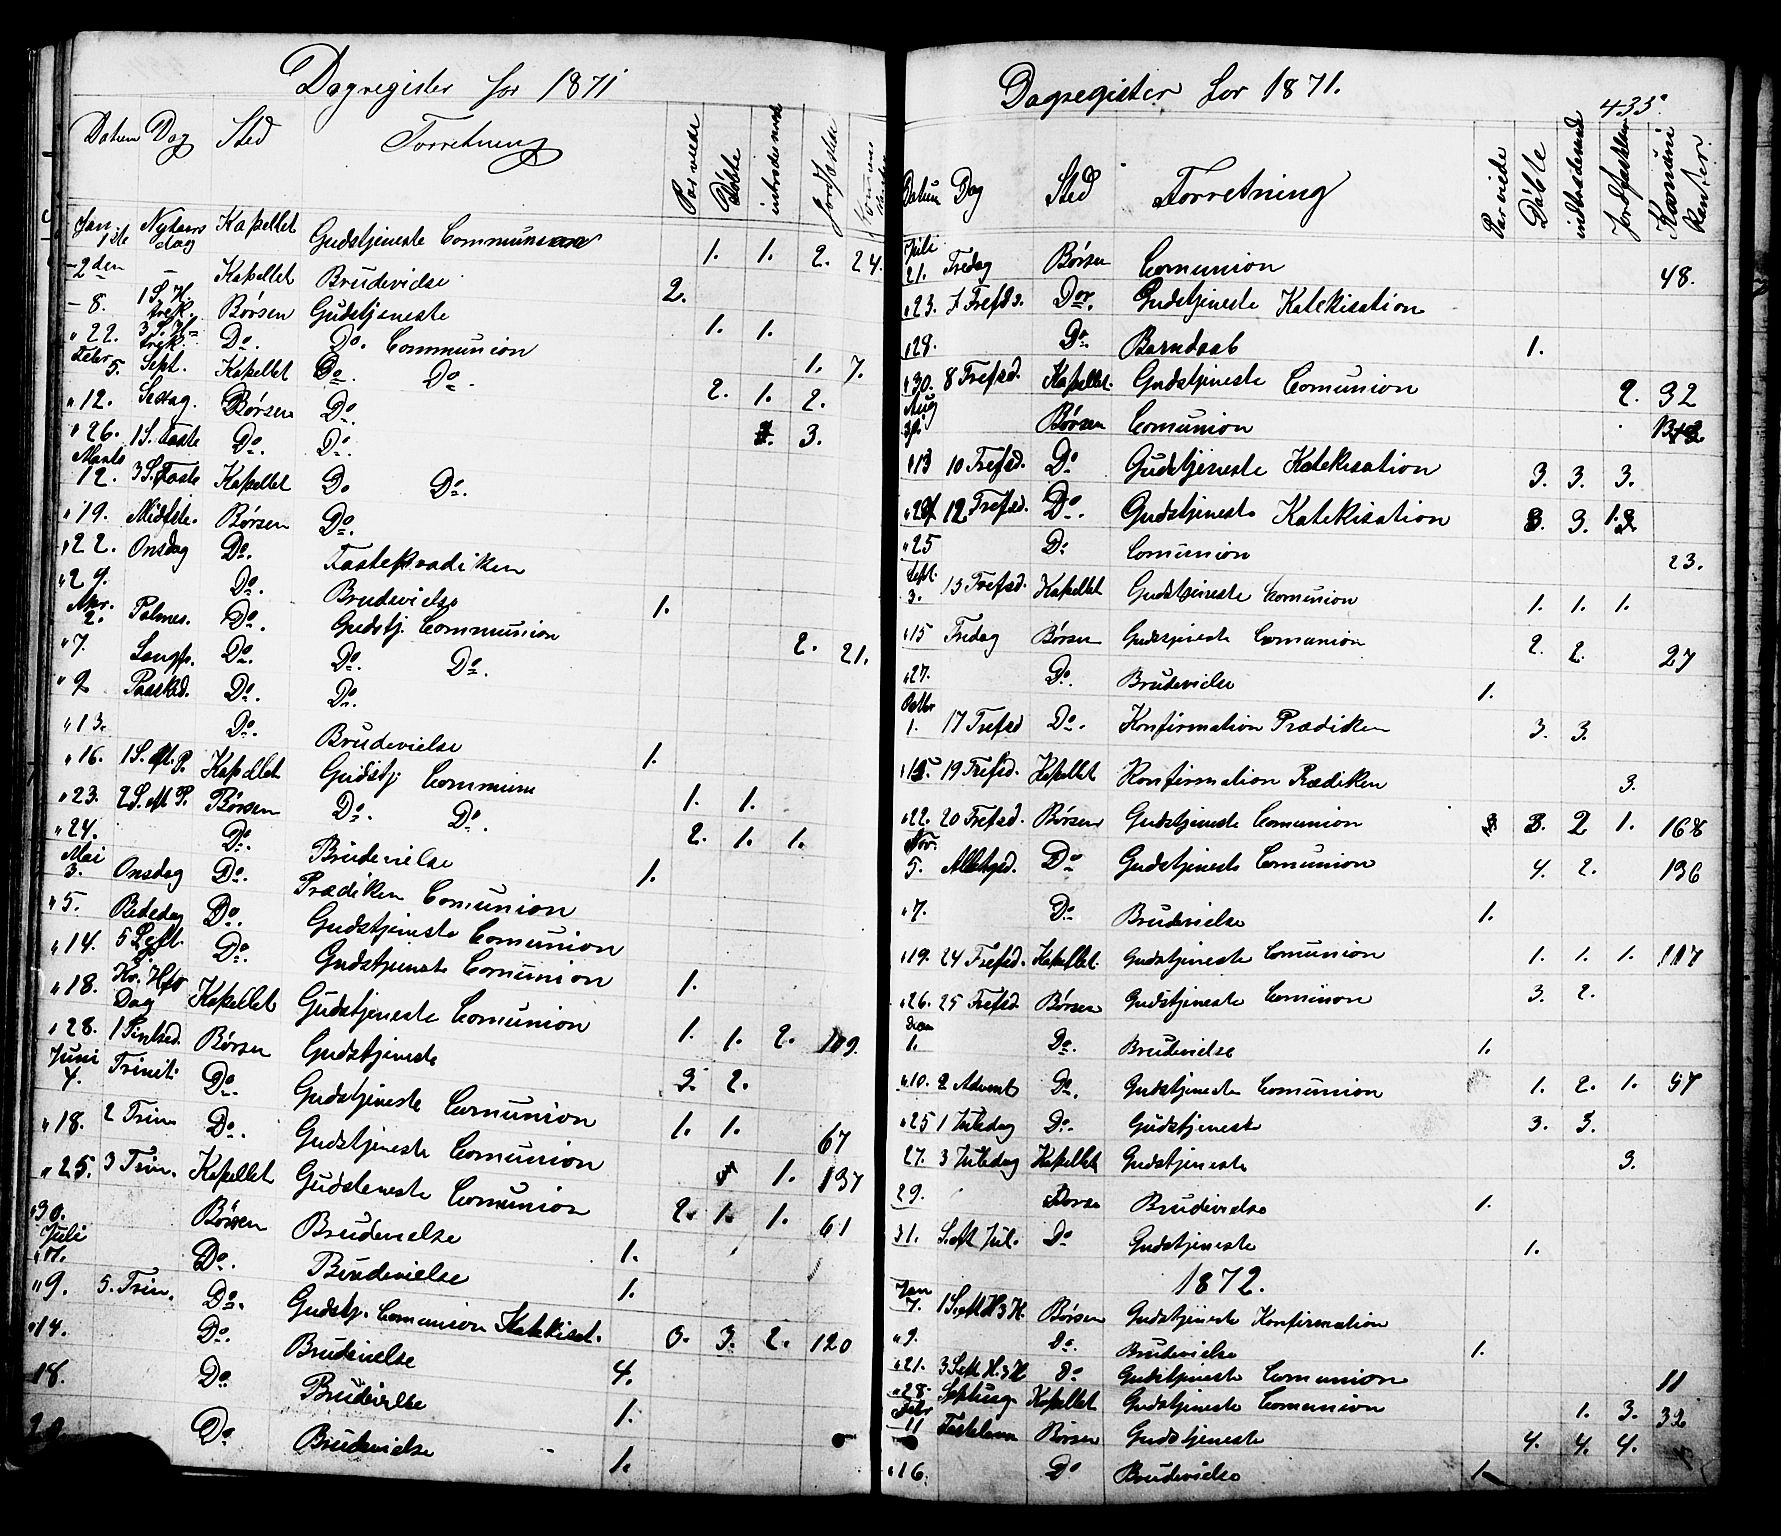 Dagregister for 1871
Datum Dag Sted Forretning Par viede Døbte introducerede Jordfæstede
Jan. 1ste Nytaarsdag Kapellet Gudstjeneste Communion 1. 1. 2. 24.
- 2den - Kapellet Brudevidse 2.
- 8. 1 S. H. trek. Børsen Gudstjeneste 1. 1.
" 22. 3 S. H. trek. Do. Do. Communion 1. 7.
Febr 5. Sept. Kapellet Do. Do. 2. 1. 2.
" 12. Sexag. Børsen Do. 3.
" 26. 1 S. Faste Do. Do.
Marts 12. 3 S. Faste Kapellet Do Do.
" 19. Midfste. Børsen Do.
" 22. Onsdag Do. Fastepradiken
" 29. Do. Brudevielse 1.
Apr. 2. Palmes. Do. Gudstj. Communion 2. 21.
" 7. Langfr. Do. Do. Do.
" 9 Paasked. Do. Do.
" 13. Do. Brudevielse 1.
" 16. 1 S. ft. P. Kapellet Gudstj Commun 1. 1.
" 23. 2 S. ft P. Børsen Do. Do. 2. 1. 1.
" 24. Do. Brudevielse 1.
Mai 3. Onsdag Do. Prædiken Comunion
" 5. Bededag Do. Gudstjeneste Comunion
" 14. 5 S. eft. Do. Gudstjeneste Comunion 1.
" 18. Kr. Hf Dag Kapellet Gudstjeneste Comunion 1. 1. 2. 109.
" 28. 1 Pintsed. Børsen Gudstjeneste 3. 2.
Juni 4. Trinit. Do. Gudstjeneste Comunion 1. 1. 67
" 18. 2 Trin Do. Gudstjeneste Comunion 1. 137
" 25. 3 Trin. Kapellet Gudsteneste Comunion 2. 1. 1. 61
" 30. Børsen Brudevielse 1.
Juli Do. Brudevielse 1.
" 9. 5. Trin. Do. Gudstj. Comunion Katekisat. 3. 3. 2. 120
" 14. Do. Brudevielse 4.
18. Do Brudevielse 1.
Do Brudevielse 1.
Dagregister for 1871.
433
Datum Dag Sted Forretning Par viede Døbte indtroducerede Jordfæstede Komunikanter.
Juli 21. Fredag Børsen Comunion 48.
" 23. 7 Trefds. Do. Gudstjeneste Katekisation
" 28. Do. Barndaab 1.
" 30. 8 Trefsd. Kapellet. Gudstjeneste Comunion 2. 32
Aug Børsen Comunion
" 13 10 Trefsd. Do Gudstjeneste Katekisation 3. 3. 3.
12 Trefsd. Do. Gudstjeneste Katekisation 3. 3.
" 25 Do Comunion 23.
Sept. 3. 13 Trefsd. Kapellet Gudstjeneste Comunion 1. 1. 1.
" 15 Fredag Børsen Gudstjeneste Comunion 2. 2. 27
" 27. Do. Brudevielse 1.
Octbr 1. 17 Trefsd Do. Konfirmation Prædiken 3. 3.
" 15 19 Trefsd. Kapellet Konfirmation Prædiken 3.
" 22. 20 Trefsd. Børsen Gudstjeneste Comunion 3. 2 1. 168
Nov. 5. Allehgsd. Do Gudstjeneste Comunion 4. 2. 136
" 7. Do Brudevielse 1.
" 19. 24 Trefsd. Kapellet. Gudstjeneste Comunion 1. 1. 1. 117
" 26. 25 Trefsd Børsen Gudstjeneste Cominion 3. 2.
1. Do. Brudevielse 1.
" 10. 2 Advent Do. Gudstjeneste Comunion 1. 2. 1. 57
" 25 1 Juledag Do. Gudstjeneste 3. 3.
27. 3 Juledag Kapellet Gudstjeneste 3.
29. Børse Brudevielse 1.
31. S. eft Jul. Do Gudstjeneste 1.
1872.
Jan 7. 1 S. eft H 3 K. Børsen Gudstjeneste Konfirmation
" 9. Do. Brudevielse 1.
" 21. 3 S eft H. 3 K Do Gudstjeneste Comunion 11
" 28. Septuag. Kapellet Gudstjeneste Comunion 1. 3. 32
Febr 11 Fastelavn Børsen Gudstjeneste 4. 4. 4.
" 16. Do Brudevielse 1.